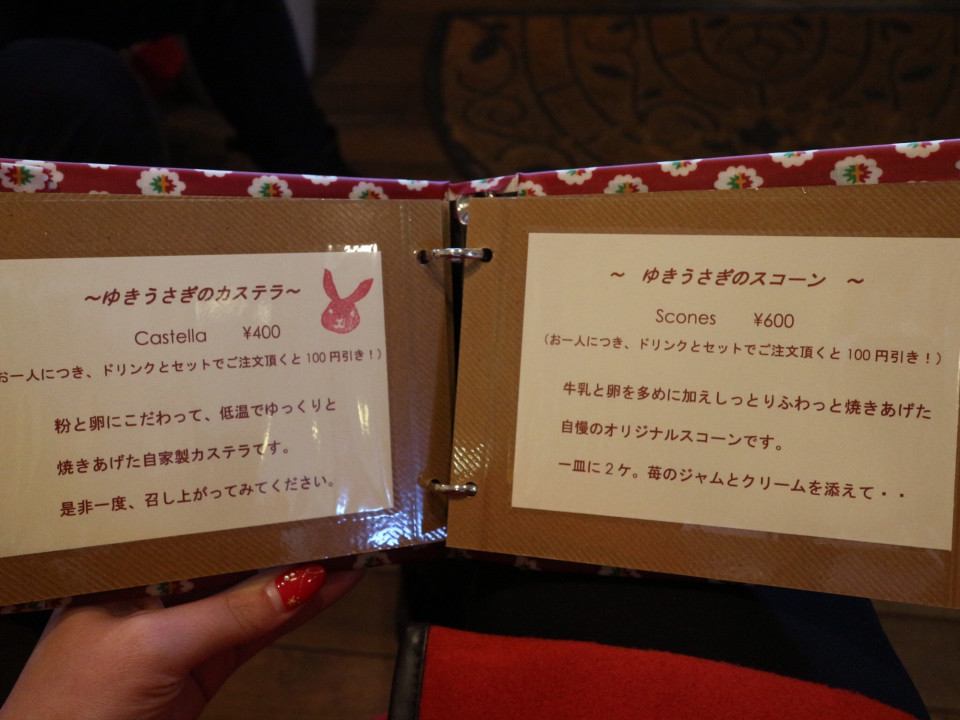 ～ゆきうさぎのカステラ～
Castella ¥400
お一人につき、ドリンクとセットでご注文頂くと100円引き！）
粉と卵にこだわって、低温でゆっくりと
焼きあげた自家製カステラです。
是非一度、召し上がってみてください。
～ ゆきうさぎのスコーン ～
Scones ¥600
（お一人につき、ドリンクとセットでご注文頂くと100円引き！）
牛乳と卵を多めに加えしっとりふわっと焼きあげた
自慢のオリジナルスコーンです。
一皿に2ケ。苺のジャムとクリームを添えて・・